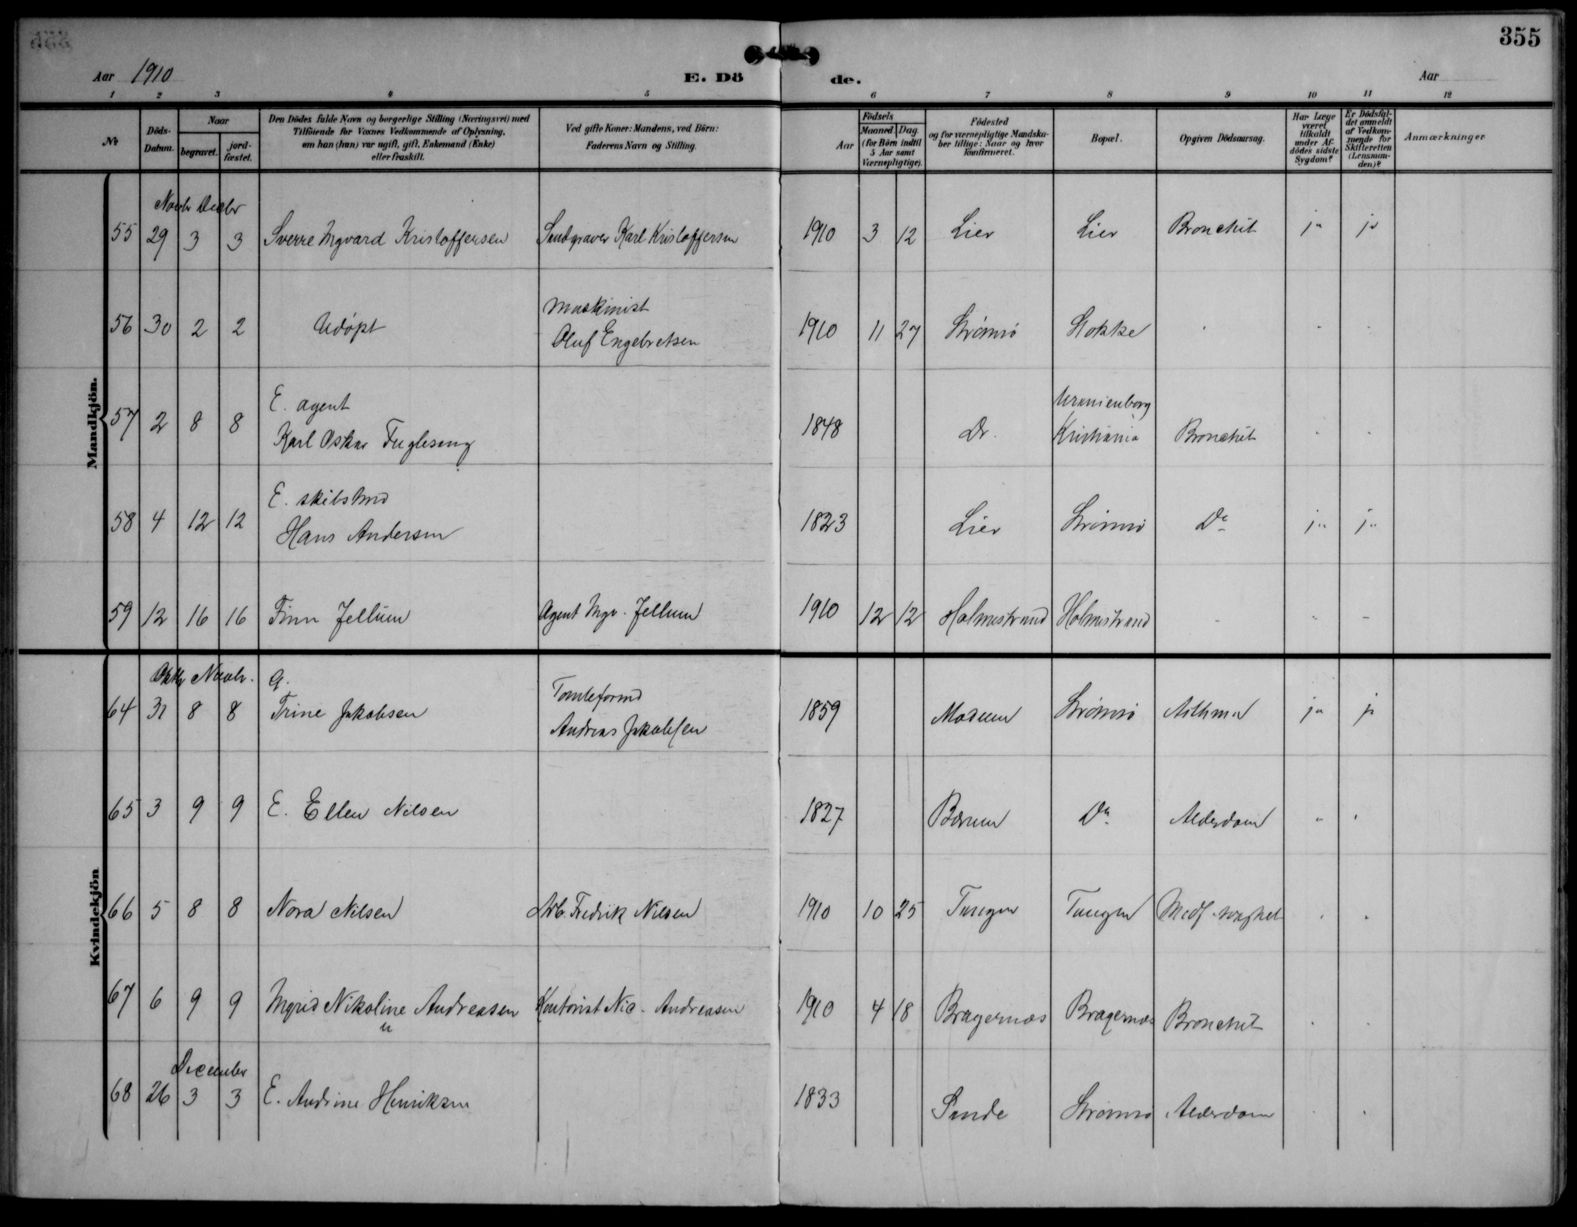 355
Aar 1910
E. Dö de.
Aar
1 2 3 4 5 6 7 8 9 10 11 12
№
Döds-Datum.
Naar
begravet.
jord-fæstet.
Den Dödes fulde Navn og borgerlige Stilling (Næringsvei) med
Tilföiende for Voxnes Vedkommende af Oplysning,
om han (hun) var ugift, gift, Enkemand (Enke)
eller fraskilt.
Ved gifte Koner: Mandens, ved Börn:
Faderens Navn og Stilling.
Födsels
Aar
Maaned Dag
(for Börn indtil
5 Aar samt
Værnepligtige).
Födested
og for værnepligtige Mandska-
ber tillige: Naar og hvor
Konfirmeret.
Bopæl.
Opgiven Dödsaarsag.
Har Læge
været
tilkaldt
under Af-
dödes sidste
Sygdom?
Er Dödsfal-
det anmeldt
af Vedkom-
mende for
Skifteretten
(Lensman-
den)?
Anmærkninger
Mandkjön.
Novbr Decbr
55 29 3 3 Sverre Ingvard Kristoffersen Sandgraver Karl Kristoffersen 1910 3 12 Lier Lier Bronchit ja ja
56 30 2 2 Udøpt Maskinist
Oluf Engebretsen 1910 11 27 Strømsø Stokke
57 2 8 8 E. agent
Karl Oskar Fugleseng 1848 Dr. Uranienborg
Kristiania Bronchit
58 4 12 12 E. skibstmd
Hans Andersen 1823 Lier Strømsø Do ja ja
59 12 16 16 Finn Jellum Agent Ingv. Jellum 1910 12 12 Holmestrand Holmestrand
Kvindekjön
Oktbr Novbr.
64 31 8 8 G.
Trine Jakobsen Tomteformd
Andreas Jakobsen 1859 Modum Strømsø Asthma ja ja
65 3 9 9 E. Ellen Nilsen 1827 Bærum Do Alderdom
66 5 8 8 Nora Nilsen Arb. Fredrik Nilsen 1910 10 25 Tangen Tangen Medf. svaghet
67 6 9 9 Ingrid Nikoline Andreasen Kontorist Nic. Andreasen 1910 4 18 Bragernæs Bragernæs Bronchit
December
68 26 3 3 E. Andrine Henriksen 1833 Sande Strømsø Alderdom